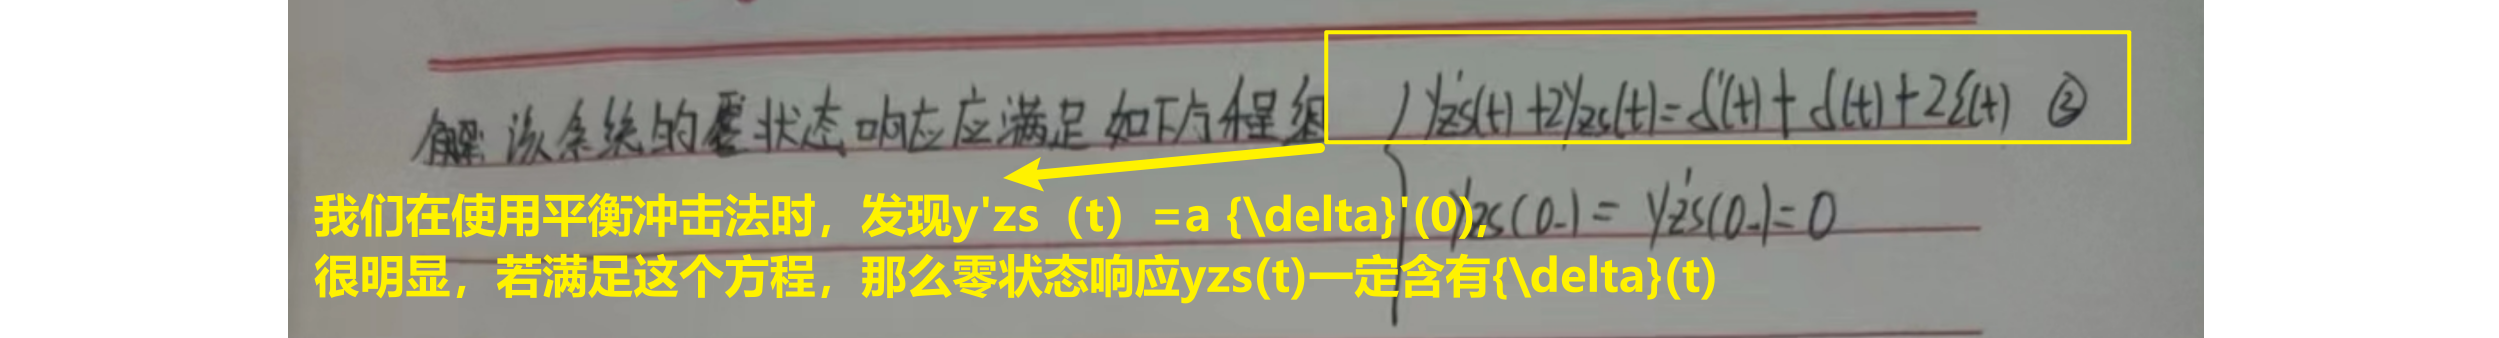 解:该系统的零状态响应应满足如下方程组 { y'zs(t)+2yzs(t)=δ'(t)+δ(t)+2ε(t) ②
yzs(0-)=y'zs(0-)=0
我们在使用平衡冲击法时，发现y'zs（t）=a {\delta}'(0),
很明显，若满足这个方程，那么零状态响应yzs(t)一定含有{\delta}(t)